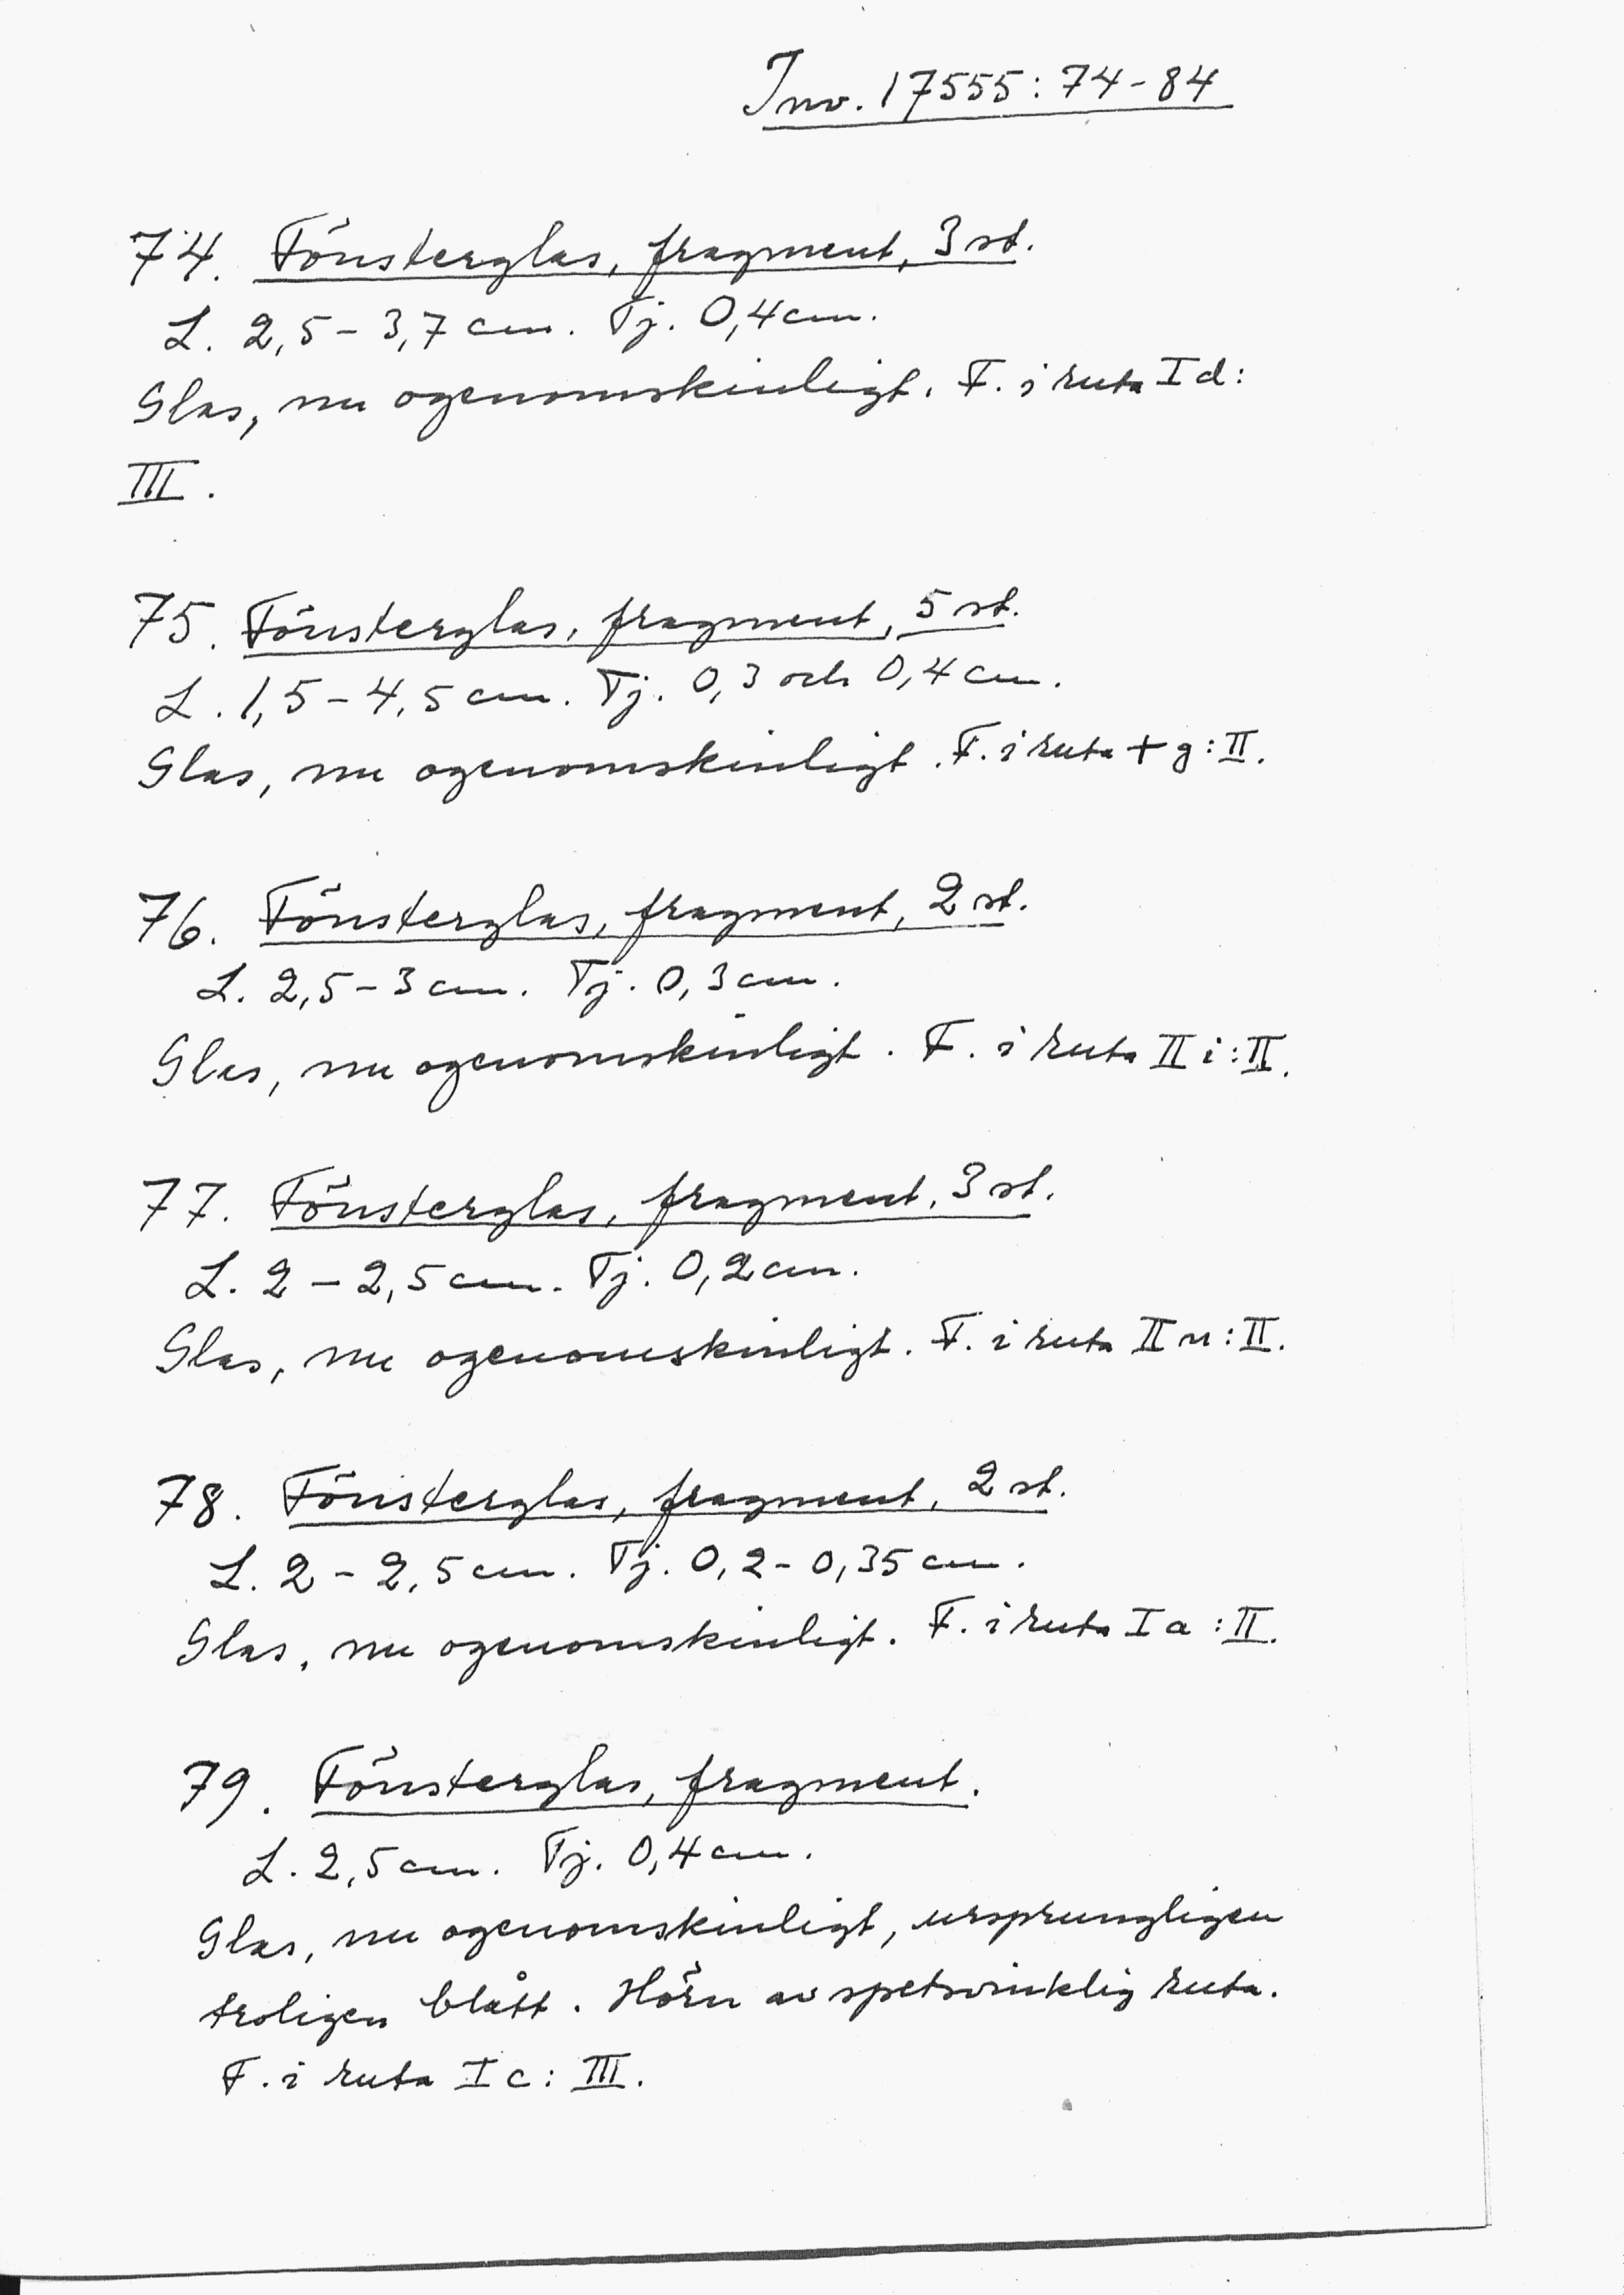 Inv. 17555: 74-84
74. Fönsterglas, fragment, 3 st.
L. 2,5 - 3,7 cm. Tj. 0,4 cm.
Glas, nu ogenomskinligt. F. i ruta I d:
III.
75. Fönsterglas, fragment, 5 st.
L. 1,5 - 4,5 cm. Tj. 0,3 och 0,4 cm.
Glas, nu ogenomskinligt. F. i ruta + g: II.
76. Fönsterglas, fragment, 2 st.
L. 2,5 - 3 cm. Tj. 0,3 cm.
Glas, nu ogenomskinligt. F. i ruta II i: II.
77. Fönsterglas, fragment, 3 st.
L. 2 - 2,5 cm. Tj. 0,2 cm.
Glas, nu ogenomskinligt. F. i ruta II n: II.
78. Fönsterglas, fragment, 2 st.
L. 2 - 2,5 cm. Tj. 0,2 - 0,35 cm.
Glas, nu ogenomskinligt. F. i ruta I a: II.
79. Fönsterglas, fragment.
L. 2,5 cm. Tj. 0,4 cm.
Glas, nu ogenomskinligt, ursprungligen
troligen blått. Hörn av spetsvinklig ruta.
F. i ruta I c: III.